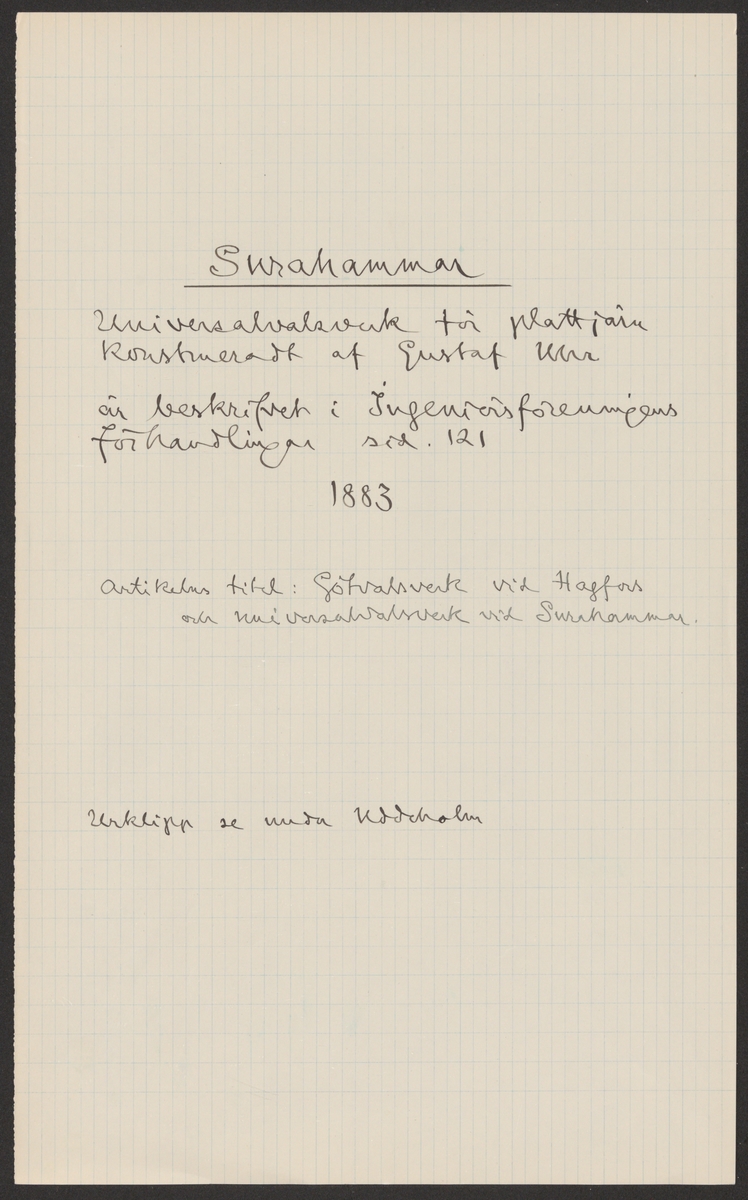 Surahammar
Universalvalsverk för plattjärn
konstrueradt af Gustaf Uhr
är beskrifvet i Ingeniörsföreningens
förhandlingar sid. 121
1883
Artikelns titel: Götvalsverk vid Hagfors
och universalvalsverk vid Surahammar.
Urklipp se under Uddeholm